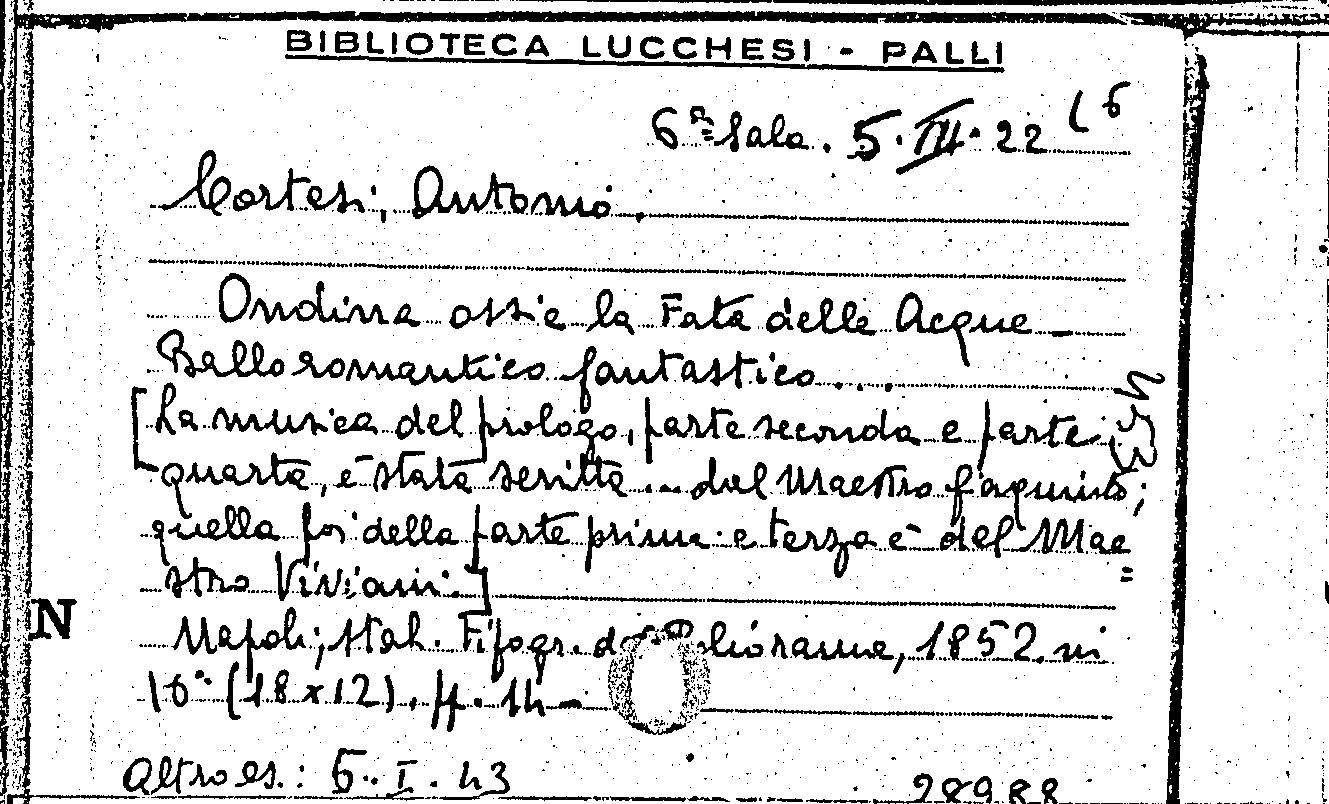 BIBLIOTECA LUCCHESI - PALLI
6ª Sala. 5. III. 22 (6
Cortesi, Antonio.
Ondina ossie la Fata delle Acque -
Ballo romantico fantastico...
[La musica del prologo, parte seconda e parte
quarta, è stata scritta ... dal Maestro Giaquinto;
quella poi della parte prima e terza è del Mae=
stro Viviani.]
N
Napoli; stab. Tipogr. del Poliorama, 1852. in
16° (18x12). pp. 14 -
Altro es.: 5. I. 43
28988